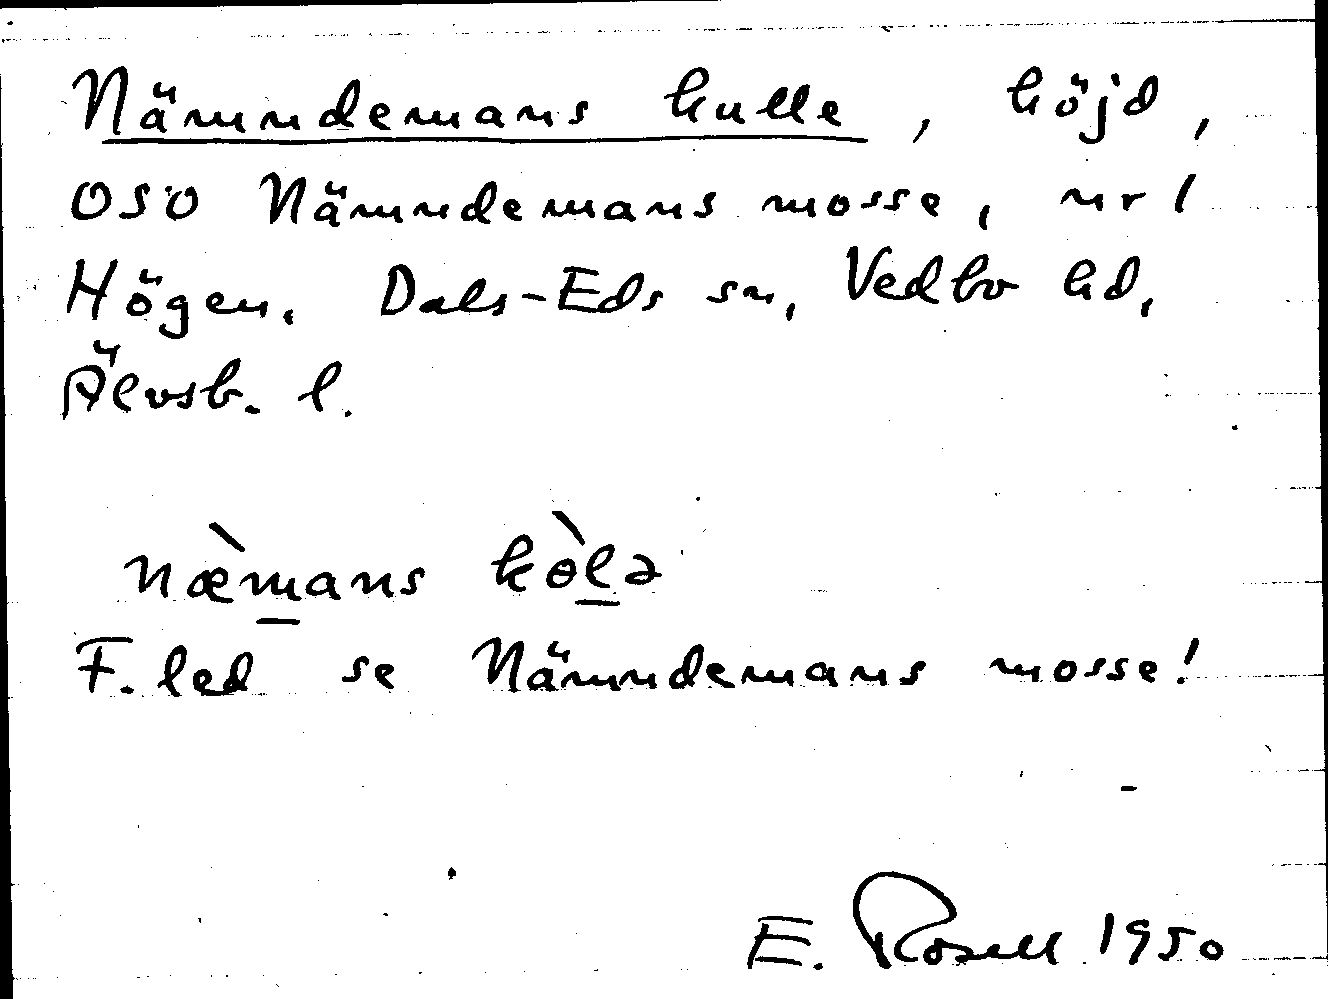 Nämndemans kulle, höjd,
OSO Nämndemans mosse, nr 1
Högen, Dals-Eds sn, Vedbo hd,
Älvsb. l.
næ̀m̲ans kɵ̀l̲ə
F. led se Nämndemans mosse!
E. Rosell 1950